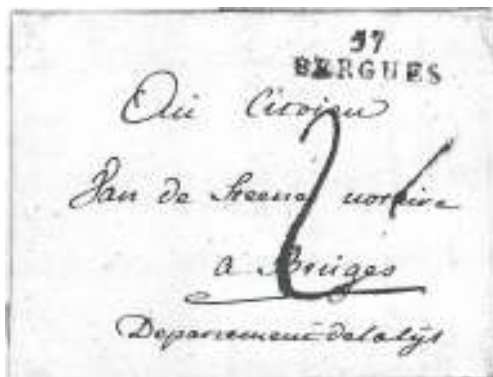 57
BERGUES
Au Citoyen
Van de Steene notaire
2
a Bruges
Departement de la lys